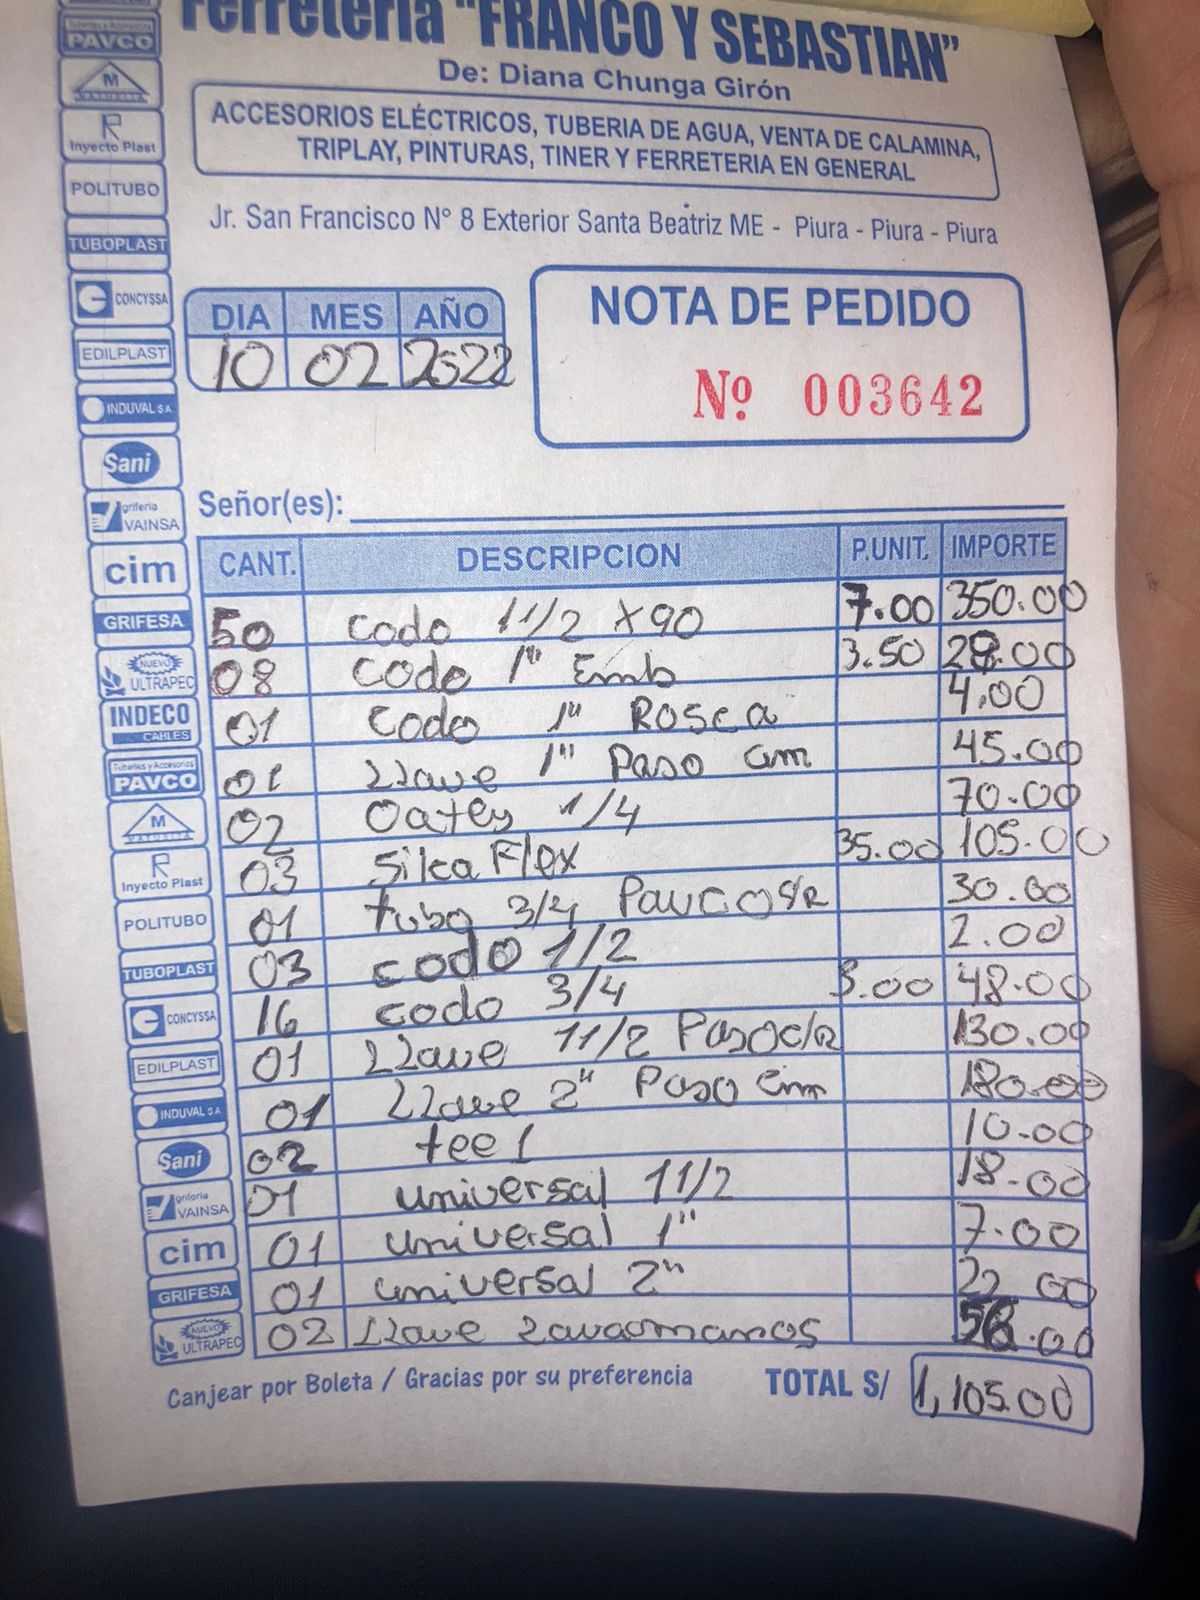 PAVCO
M
R
Inyecto Plast
POLITUBO
TUBOPLAST
CONCYSSA
EDILPLAST
INDUVAL S.A
Sani
grifería
VAINSA
cim
GRIFESA
NUEVO
ULTRAPEC
INDECO
CABLES
Tuberías y Accesorios
PAVCO
M
R
Inyecto Plast
POLITUBO
TUBOPLAST
CONCYSSA
EDILPLAST
INDUVAL S.A
Sani
grifería
VAINSA
cim
GRIFESA
NUEVO
ULTRAPEC
Ferretería "FRANCO Y SEBASTIAN"
De: Diana Chunga Girón
ACCESORIOS ELÉCTRICOS, TUBERIA DE AGUA, VENTA DE CALAMINA,
TRIPLAY, PINTURAS, TINER Y FERRETERIA EN GENERAL
Jr. San Francisco N° 8 Exterior Santa Beatriz ME - Piura - Piura - Piura
DIA MES AÑO
10 02 2022
NOTA DE PEDIDO
Nº 003642
Señor(es):
CANT. DESCRIPCION P.UNIT. IMPORTE
50 codo 1 1/2 x 90 7.00 350.00
08 codo 1" Emb 3.50 28.00
01 codo 1" Rosca 4.00
01 Llave 1" Paso cim 45.00
02 Oatey 1/4 70.00
03 Silka Flex 35.00 105.00
01 tubo 3/4 Pavco S/R 30.00
03 codo 1/2 2.00
16 codo 3/4 3.00 48.00
01 Llave 1 1/2 Paso C/R 130.00
01 Llave 2" Paso cim 180.00
02 tee 1 10.00
01 universal 1 1/2 18.00
01 universal 1" 7.00
01 universal 2" 22 00
02 Llave Lavaomanos 56.00
Canjear por Boleta / Gracias por su preferencia
TOTAL S/ 1,105.00